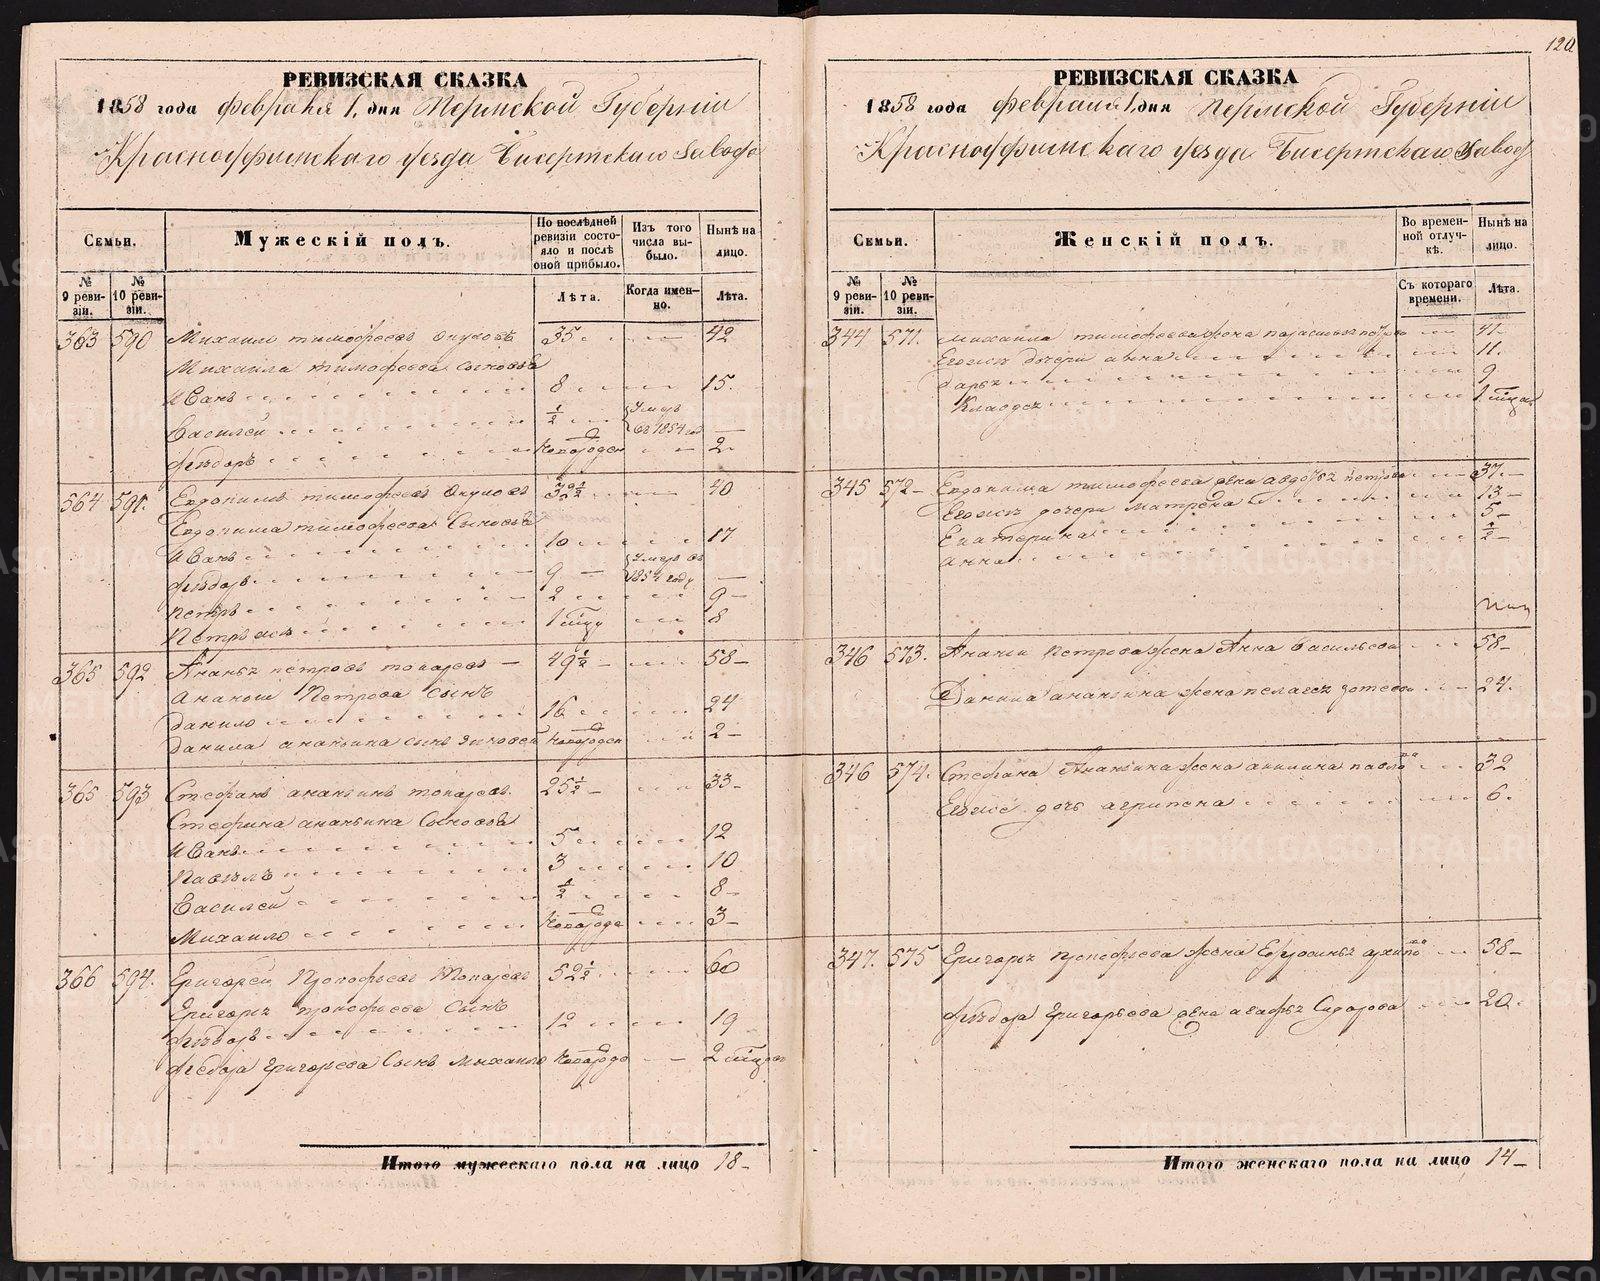 РЕВИЗСКАЯ СКАЗКА
1858 года февраля 1. дня Пермской Губернии
Красноуфимскаго уезда Бисертскаго завода
Семьи.
Мужескій полъ.
По послѣдней ревизіи состояло и послѣ оной прибыло.
Изъ того числа выбыло.
Нынѣ на лицо.
№ 9 ревизіи.
№ 10 ревизіи.
Лѣта.
Когда именно.
Лѣта.
363 590 Михаилъ тимофеевъ 35 42
Михаила тимофеева сыновья
Иванъ 8 15.
Василей ½ Умеръ въ 1854 год
Фѣдоръ новорожден 2
564 591. Евдокимъ тимофеевъ 32½ 40
Евдокима тимофеева Сыновья
Иванъ 10 17
Фѣдоръ 9 Умеръ въ 1854 году
Петръ 2 9
Петръ 8
365 592 Ананья петровъ топаревъ 49½ 58
Ананьи Петрова Сынъ
данило 16 24
данила ананьина сынъ зиновей новорожден 2
365 593 Стефанъ ананьинъ топаревъ 25½ 33
Стефана ананьина Сыновья
Иванъ 5 12
Павелъ 3 10
Василей ½ 8
Михаило новорожде 3
366 594. Григорей Прокофьевъ Топаревъ 52½ 60
Григорья прокофьева Сынъ
Фѣдоръ 12 19
Федора Григорьева Сынъ Михаило новорожде 2
Итого мужескаго пола на лицо 18
120
РЕВИЗСКАЯ СКАЗКА
1858 года февраля 1. дня Пермской Губернии
Красноуфимскаго уезда Бисертскаго завод
Семьи.
Женскій полъ.
Во временной отлучкѣ.
Нынѣ на лицо.
№ 9 ревизіи.
№ 10 ревизіи.
Съ котораго времени.
Лѣта.
344 571. Михаила тимофеева жена 41.
Егожъ дочери анна 11.
дарья 9
Клавдея 1
345 572 Евдокима тимофеева жена авдотья петрова 37.
Егожъ дочери Матрена 13
Екатерина 5
анна ½
346 573. Ананьи Петрова жена Анна Васильева 58
Данила ананьина жена пелагея зотеева 24.
346 574. Стефана Ананьина жена акилина павло 32
Егоже дочь агрипена 6.
347. 575 Григорья прокофьева жена Ефросинья архипо 58
Фѣдора Григорьева жена агафья Сидорова 20.
Итого женскаго пола на лицо 14
METRIKI.GASO-URAL.RU